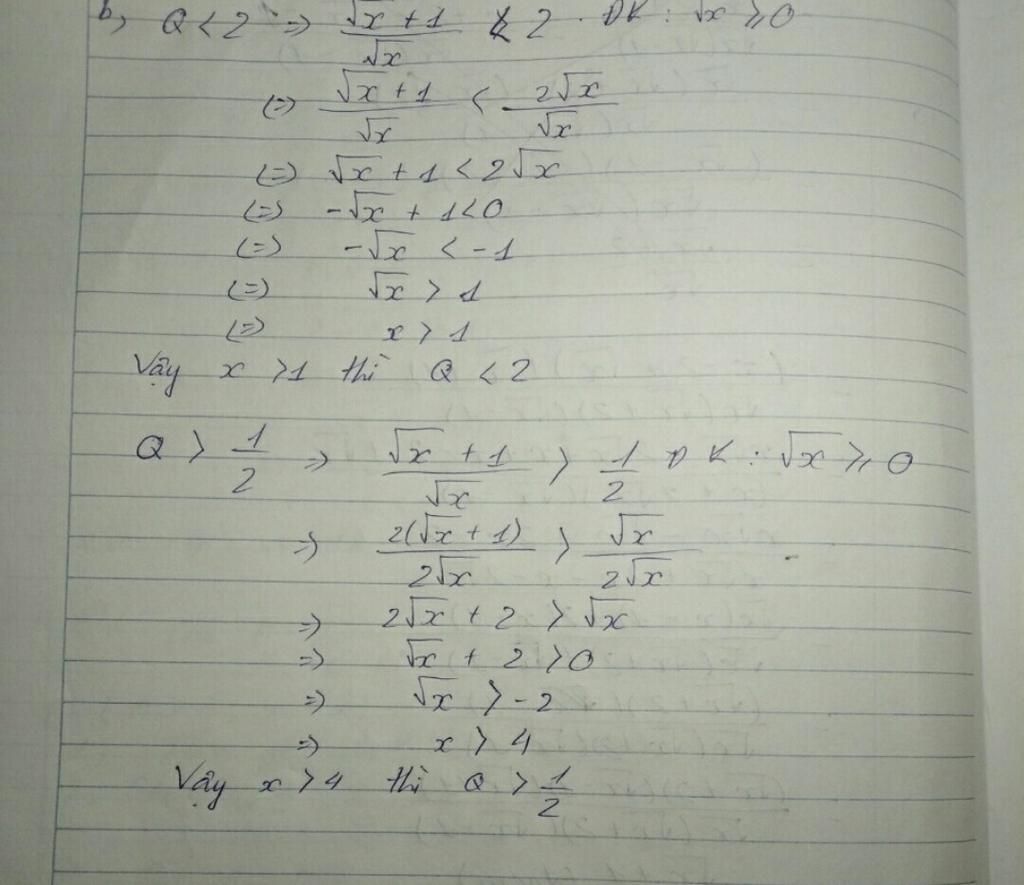 b, Q < 2 => (√x + 1)/√x < 2. ĐK: √x ≥ 0
(=) (√x + 1)/√x < 2√x/√x
(=) √x + 1 < 2√x
(=) -√x + 1 < 0
(=) -√x < -1
(=) √x > 1
(=) x > 1
Vậy x > 1 thì Q < 2
Q > 1/2 => (√x + 1)/√x > 1/2 ĐK: √x ≥ 0
=> 2(√x + 1)/2√x > √x/2√x
=> 2√x + 2 > √x
=> √x + 2 > 0
=> √x > -2
=> x > 4
Vậy x > 4 thì Q > 1/2